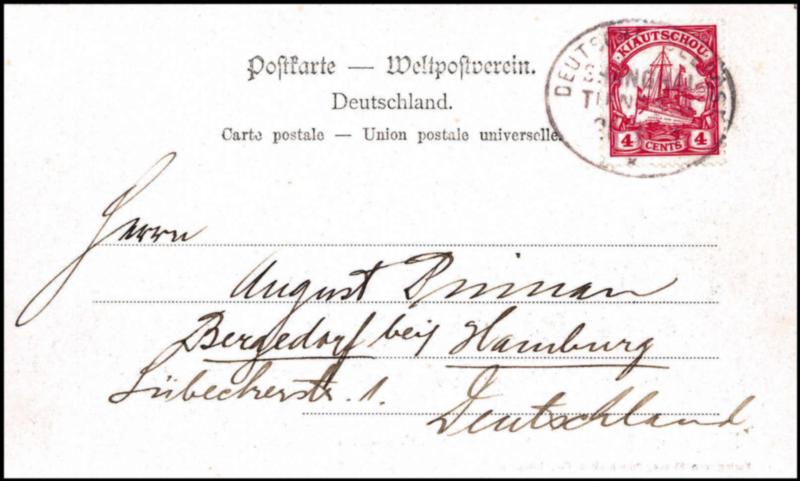 Postkarte — Weltpostverein.
Deutschland.
Carte postale — Union postale universelle.
KIAUTSCHOU
4 CENTS 4
DEUTSCHE
SHANGHAI
Herrn
August
Bergedorf bei Hamburg
Lübeckerstr. 1.
Deutschland.